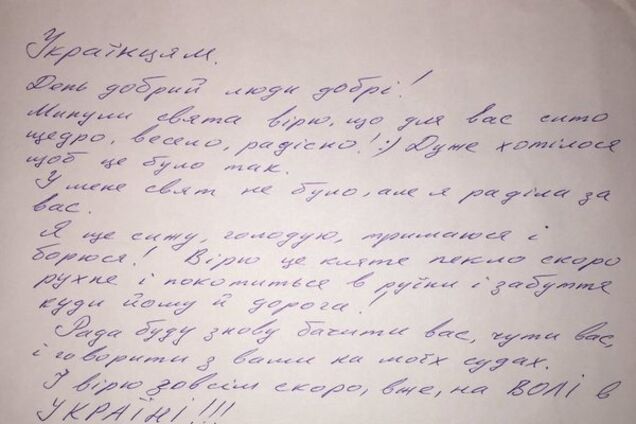 Українцям.
День добрий люди добрі!
Минули свята вірю, що для вас сито
щедро, весело, радісно! :) Дуже хотілося
щоб це було так.
У мене свят не було, але я раділа за
вас.
Я ще сижу, голодую, тримаюся і
борюся! Вірю це кляте пекло скоро
рухне і покотиться в руїни і забуття
куди йому й дорога!
Рада буду знову бачити вас, чути вас,
і говорити з вами на моїх судах.
І вірю зовсім скоро, вже, на ВОЛІ в
УКРАЇНІ!!!